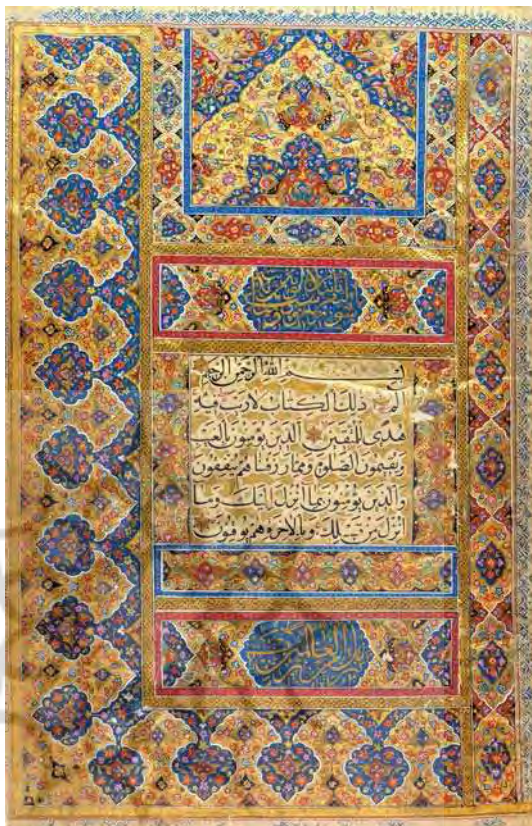 بسم الله الرحمن الرحيم
الم ذلك الكتاب لا ريب فيه
هدى للمتقين الذين يؤمنون بالغيب
ويقيمون الصلوة ومما رزقناهم ينفقون
والذين يؤمنون بما أنزل إليك وما
أنزل من قبلك وبالآخرة هم يوقنون
رب العالمين